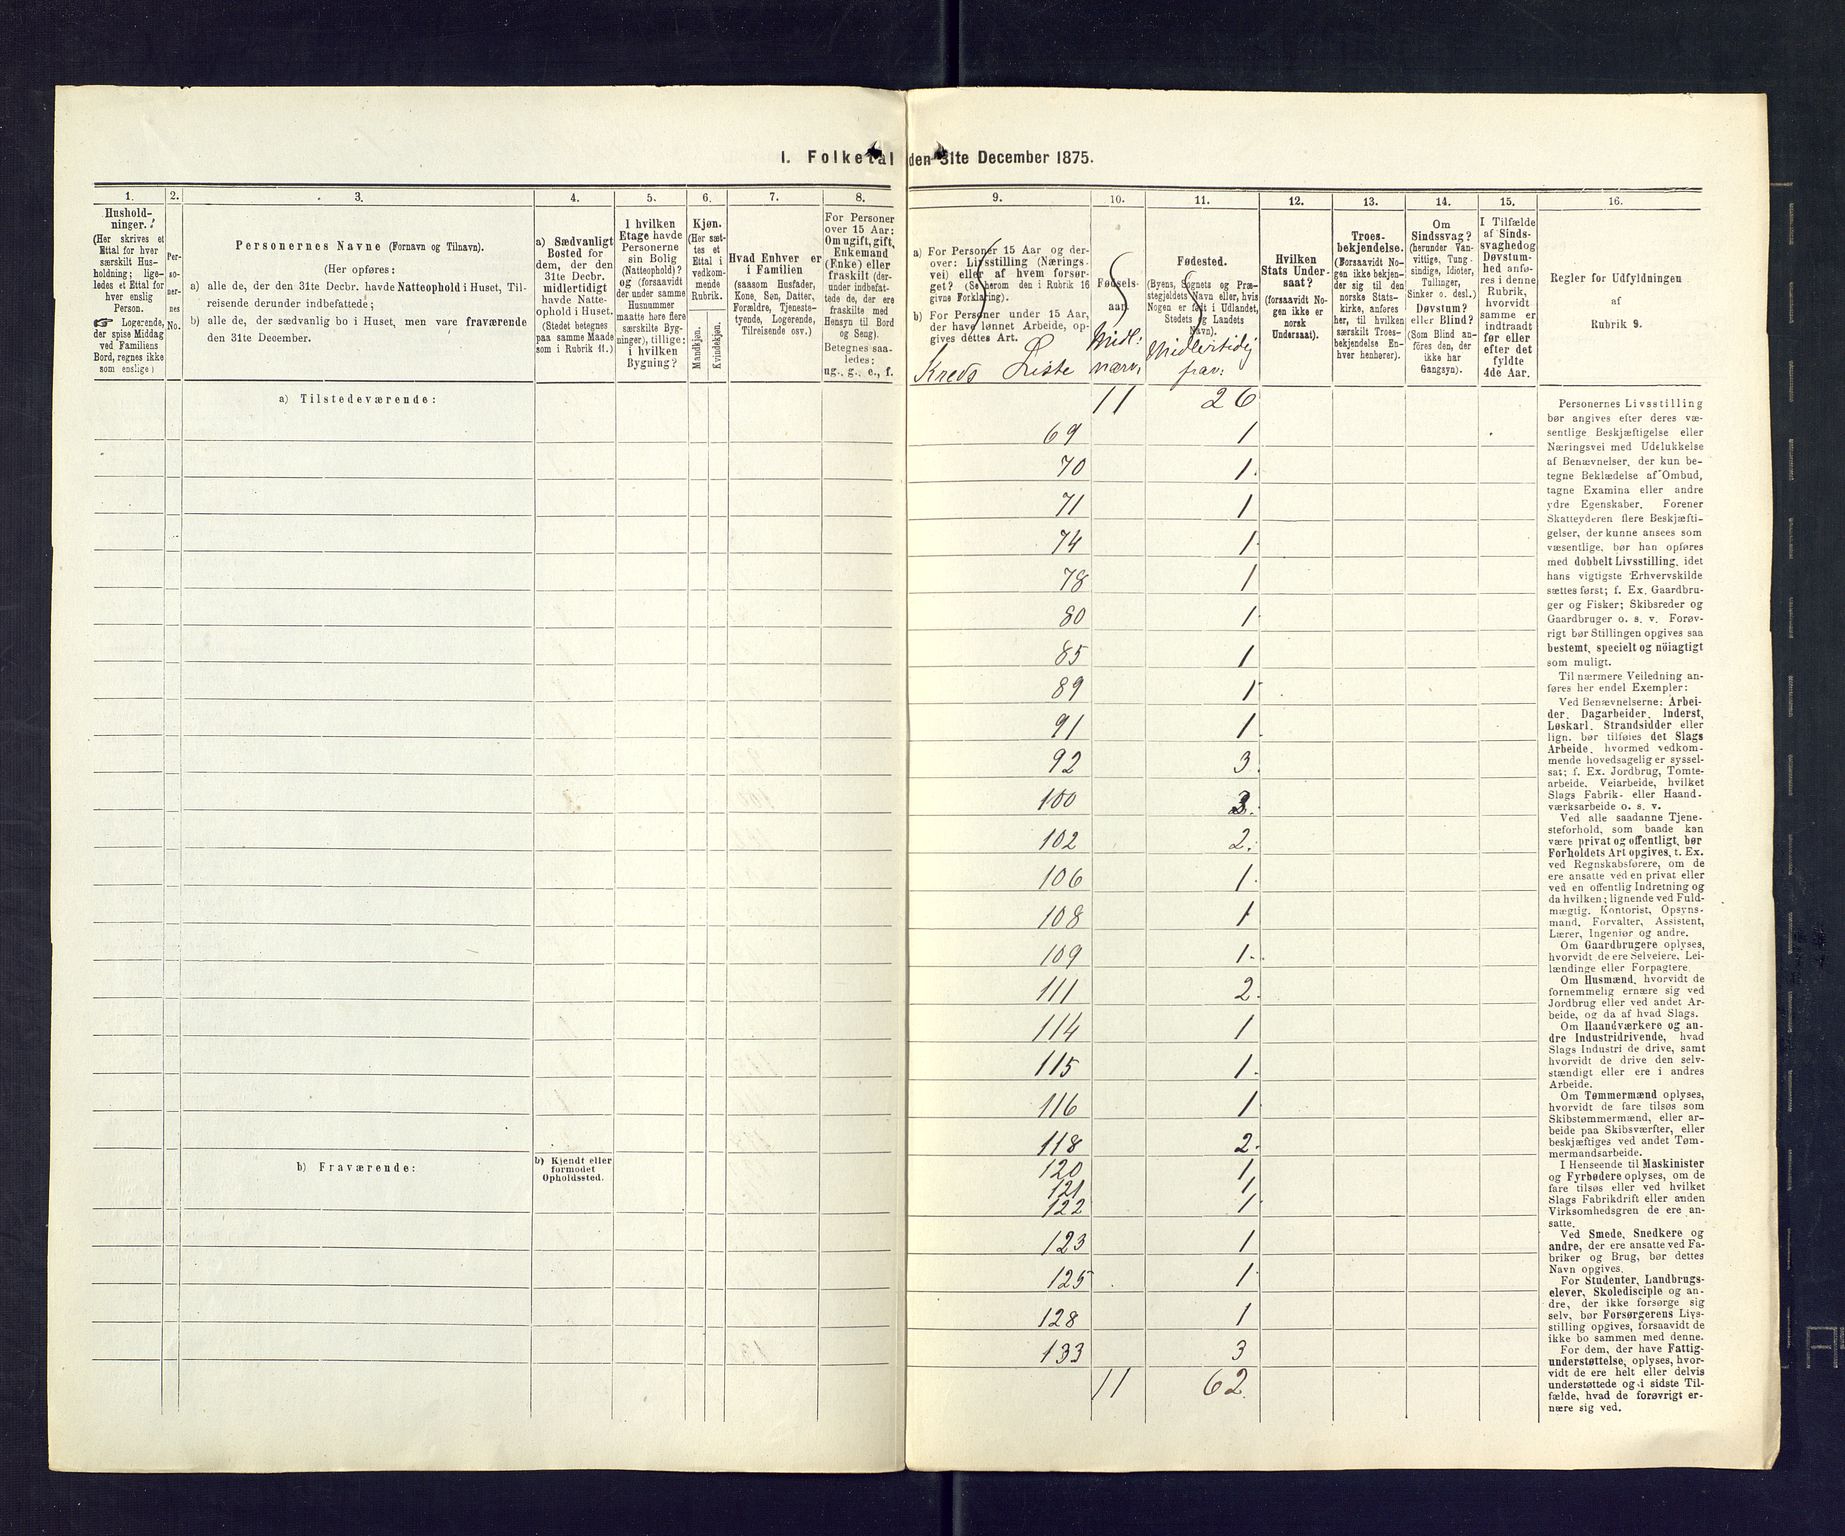 I. Folketal den 31te December 1875.
1.
Hushold-
ninger.
(Her skrives et
Ettal for hver
særskilt Hus-
holdning; lige-
ledes et Ettal for
hver enslig
Person.
☞ Logerende,
der spise Middag
ved Familiens
Bord, regnes ikke
som enslige)
2.
Per-
so-
ner-
nes
No.
3.
Personernes Navne (Fornavn og Tilnavn).
(Her opføres:
a) alle de, der den 31te Decbr. havde Natteophold i Huset, Til-
reisende derunder indbefattede;
b) alle de, der sædvanlig bo i Huset, men vare fraværende
den 31te December.
4.
a) Sædvanligt
Bosted for
dem, der den
31te Decbr.
midlertidigt
havde Natte-
ophold i Huset.
(Stedet betegnes
paa samme Maade
som i Rubrik 11.)
5.
I hvilken
Etage havde
Personerne
sin Bolig
(Natteophold)?
og (forsaavidt
der under samme
Husnummer
maatte høre flere
særskilte Byg-
ninger), tillige:
i hvilken
Bygning?
6.
Kjøn.
(Her sæt-
tes et
Ettal i
vedkom-
mende
Rubrik.
Mandkjøn.
Kvindekjøn.
7.
Hvad Enhver er
i Familien
(saasom Husfader,
Kone, Søn, Datter,
Forældre, Tjeneste-
tyende, Logerende,
Tilreisende osv.)
8.
For Personer
over 15 Aar:
Om ugift, gift,
Enkemand
(Enke) eller
fraskilt (der-
under indbefat-
tede de, der ere
fraskilte med
Hensyn til Bord
og Seng).
Betegnes saa-
ledes:
ug., g., e., f.
9.
a) For Personer 15 Aar og der-
over: Livsstilling (Nærings-
vei) eller af hvem forsør-
get? (Se herom den i Rubrik 16
givne Forklaring).
b) For Personer under 15 Aar,
der have lønnet Arbeide, op-
gives dettes Art.
Kreds Liste
10.
Fødsels-
aar.
Midl:
nærv:
11.
Fødested.
(Byens, Sognets og Præ-
stegjeldets Navn eller, hvis
Nogen er født i Udlandet,
Stedets og Landets
Navn).
Midlertidig
frav:
12.
Hvilken
Stats Under-
saat?
(forsaavidt No-
gen ikke er
norsk
Undersaat).
13.
Troes-
bekjendelse.
(Forsaavidt No-
gen ikke bekjen-
der sig til den
norske Stats-
kirke, anføres
her, til hvilken
særskilt Troes-
bekjendelse En-
hver henhører).
14.
Om
Sindssvag?
(herunder Van-
vittige, Tung-
sindige, Idioter,
Tullinger,
Sinker o. desl.)
Døvstum?
eller Blind?
(Som Blind an-
føres den, der
ikke har
Gangsyn).
15.
I Tilfælde
af Sinds-
svaghed og
Døvstum-
hed anfø-
res i denne
Rubrik,
hvorvidt
samme er
indtraadt
før eller
efter det
fyldte
4de Aar.
16.
Regler for Udfyldningen
af
Rubrik 9.
a) Tilstedeværende:
11 26
69 1
70 1
71 1
74 1
78 1
80 1
85 1
89 1
91 1
92 3
100 3
102 2
106 1
108 1
109 1
111 2
114 1
115 1
116 1
118 2
b) Fraværende:
b) Kjendt eller
formodet
Opholdssted.
120 1
121 1
122 1
123 1
125 1
128 1
133 3
11 62
Personernes Livsstilling
bør angives efter deres væ-
sentlige Beskjæftigelse eller
Næringsvei med Udelukkelse
af Benævnelser, der kun be-
tegne Beklædelse af Ombud,
tagne Examina eller andre
ydre Egenskaber. Forener
Skatteyderen flere Beskjæfti-
gelser, der kunne ansees som
væsentlige, bør han opføres
med dobbelt Livsstilling, idet
hans vigtigste Erhvervskilde
sættes først; f. Ex. Gaardbru-
ger og Fisker; Skibsreder og
Gaardbruger o. s. v. Forøv-
rigt bør Stillingen opgives saa
bestemt, specielt og nöiagtigt
som muligt.
Til nærmere Veiledning an-
føres her endel Exempler:
Ved Benævnelserne: Arbei-
der, Dagarbeider, Inderst,
Løskarl, Strandsidder eller
lign. bør tilføies det Slags
Arbeide, hvormed vedkom-
mende hovedsagelig er syssel-
sat; f. Ex. Jordbrug, Tomte-
arbeide, Veiarbeide, hvilket
Slags Fabrik- eller Haand-
værksarbeide o. s. v.
Ved alle saadanne Tjene-
steforhold, som baade kan
være privat og offentligt, bør
Forholdets Art opgives, t. Ex.
ved Regnskabsførere, om de
ere ansatte ved en privat eller
ved en offentlig Indretning og
da hvilken; lignende ved Fuld-
mægtig, Kontorist, Opsyns-
mand, Forvalter, Assistent,
Lærer, Ingeniør og andre.
Om Gaardbrugere oplyses,
hvorvidt de ere Selveiere, Lei-
lændinge eller Forpagtere.
Om Husmænd, hvorvidt de
fornemmelig ernære sig ved
Jordbrug eller ved andet Ar-
beide, og da af hvad Slags.
Om Haandværkere og an-
dre Industridrivende, hvad
Slags Industri de drive, samt
hvorvidt de drive den selv-
stændigt eller ere i andres
Arbeide.
Om Tømmermænd oplyses,
hvorvidt de fare tilsøs som
Skibstømmermænd, eller ar-
beide paa Skibsværfter, eller
beskjæftiges ved andet Tøm-
mermandsarbeide.
I Henseende til Maskinister
og Fyrbødere oplyses, om de
fare tilsøs eller ved hvilket
Slags Fabrikdrift eller anden
Virksomhedsgren de ere an-
satte.
Ved Smede, Snedkere og
andre, der ere ansatte ved Fa-
briker og Brug, bør dettes
Navn opgives.
For Studenter, Landbrugs-
elever, Skoledisciple og an-
dre, der ikke forsørge sig
selv, bør Forsørgerens Livs-
stilling opgives, forsaavidt de
ikke bo sammen med denne.
For dem, der have Fattig-
understøttelse, oplyses, hvor-
vidt de ere helt eller delvis
understøttede og i sidste Til-
fælde, hvad de forøvrigt er-
nære sig ved.